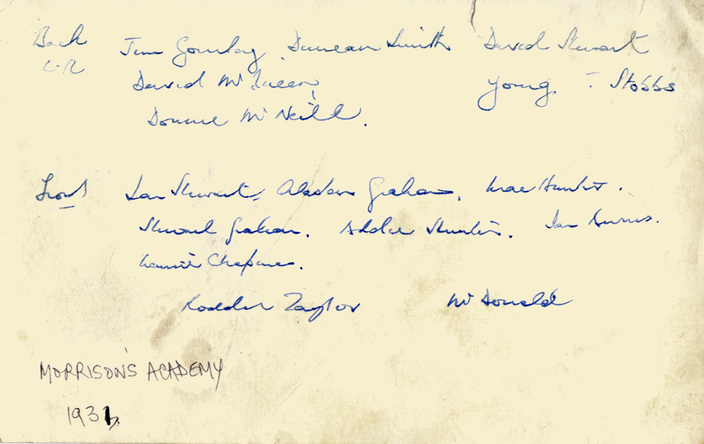 Back Jim Gourlay Duncan Smith David Stewart
L-R David McQueen Young. ? Stobbs
Donnie McNeill.
Front Ian Stewart, Alastair Graham, Hunter.
Stewart Graham. Eddie Hunter. Ian Burns.
Chapman.
Rodder Taylor McDonald
MORRISON'S ACADEMY
1931.